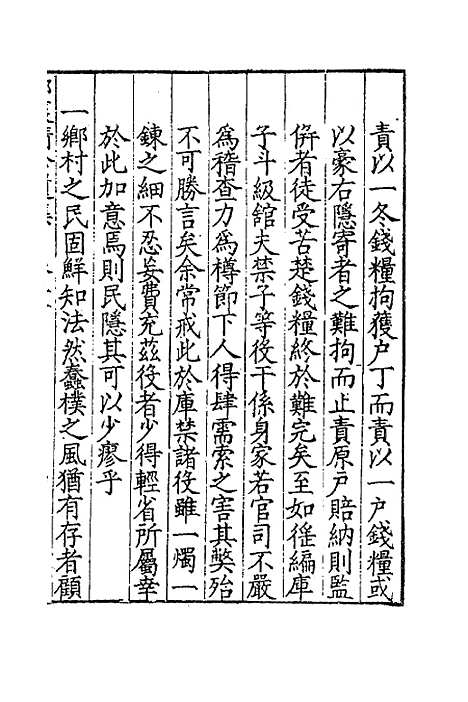 責以一冬錢糧拘獲户丁而責以一户錢糧或
以豪右隱寄者之難拘而止責原户賠納則監
併者徒受苦楚錢糧終於難完矣至如徭編庫
子斗級舘夫禁子等役干係身家若官司不嚴
爲稽查力爲樽節下人得肆需索之害其獘殆
不可勝言矣余常戒此於庫禁諸役雖一燭一
鍊之細不忍妄費充兹役者少得輕省所屬幸
於此加意焉則民隱其可以少瘳乎
一鄉村之民固鮮知法然蠢樸之風猶有存者顧